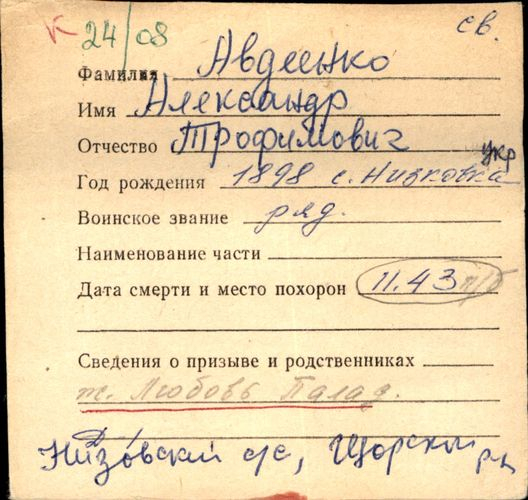 К 24/08 св.
Фамилия Авдеенко
Имя Александр
Отчество Трофимович укр
Год рождения 1898 с. Низковка
Воинское звание ряд.
Наименование части
Дата смерти и место похорон 11.43 п/б
Сведения о призыве и родственниках
ж. Любовь Палад.
Низовский с/с, Щорский р-н